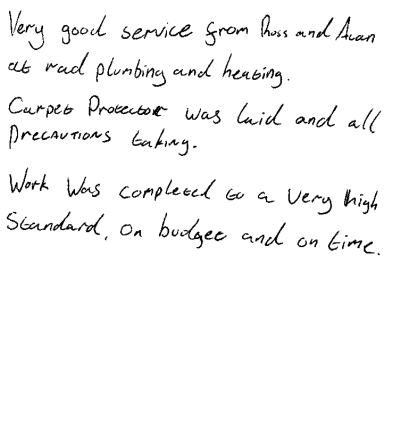 Very good service from Ross and Alan
at rad plumbing and heating.
Carpet Protector was laid and all
Precautions taking.
Work Was completed to a very high
Standard, on budget and on time.